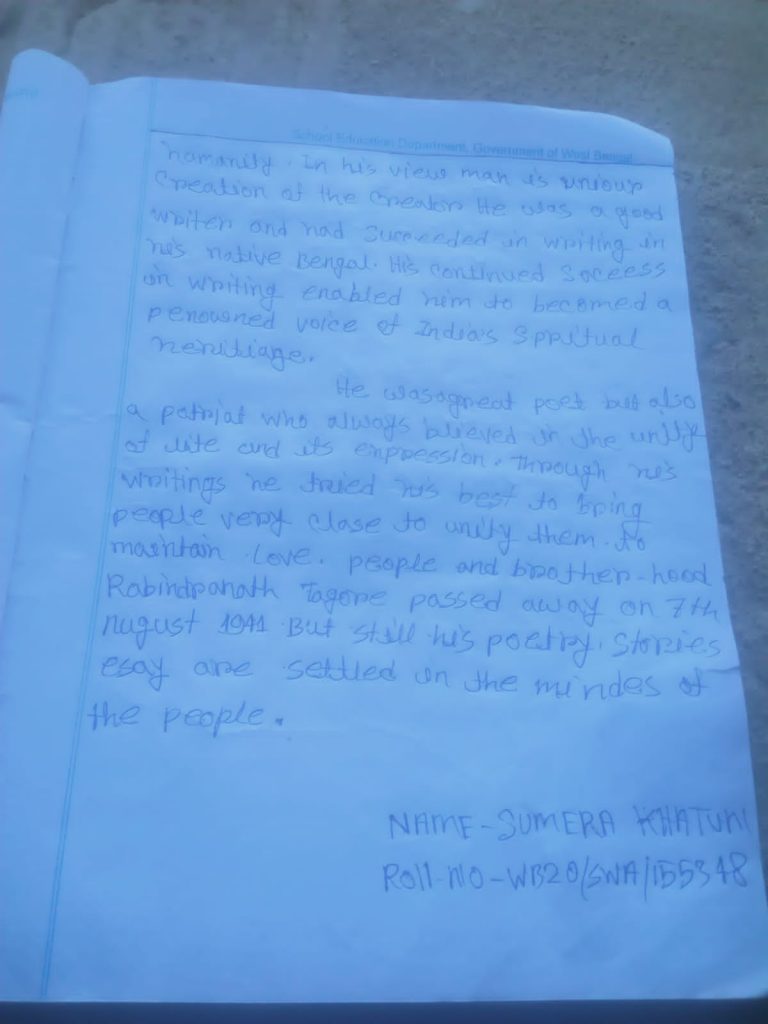 School Education Department, Government of West Bengal
humanity. In his view man is uniour
Creation of the Creator. He was a good
writer and had Succeeded in writing in
his native Bengal. His continued Soceess
in writing enabled him to becomed a
renowned voice of India's Sppritual
heritiage.
He wasagreat poet but also
a patriat who always blieved in the unity
of life and its expression. Through his
writings he tried his best to bring
people very close to unity them. to
maintain love. people and brother-hood
Rabindranath Tagore passed away on 7th
August 1941 But still his poetry, Stories
esay are settled in the mindes of
the people.
NAME-SUMERA KHATUN
Roll-NO-WB20/SWA/155348